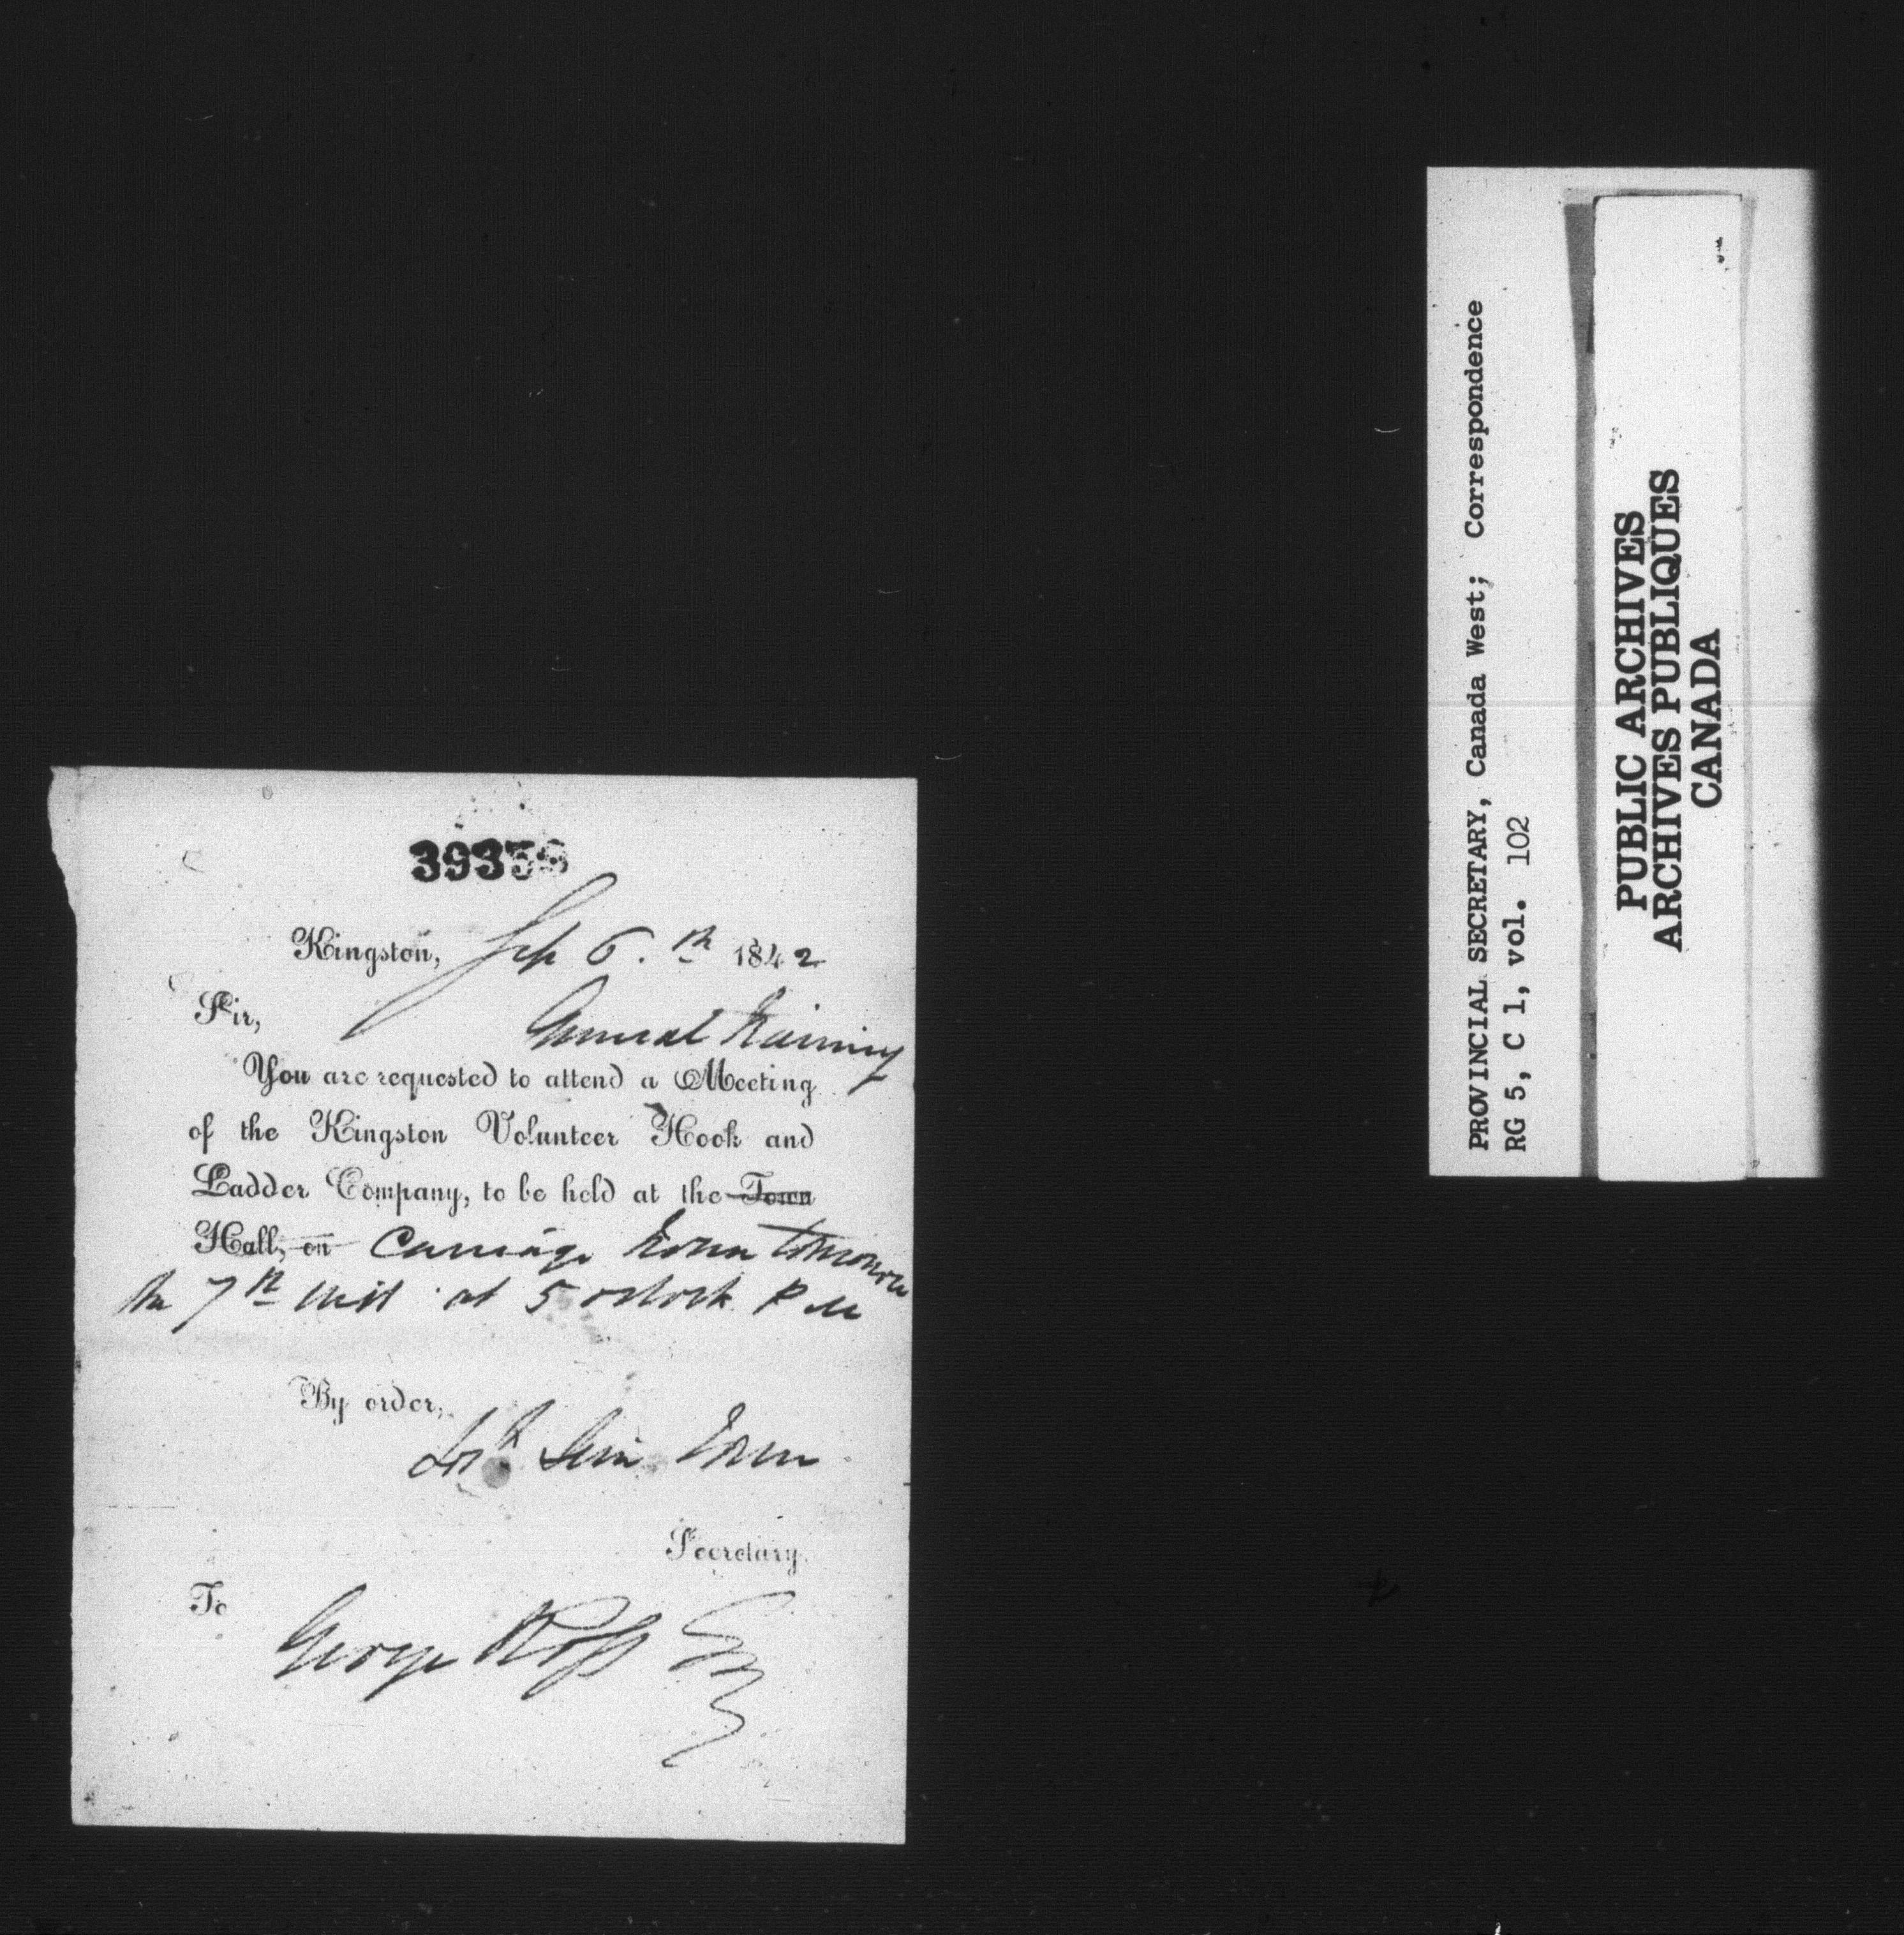 39358
Kingston, Sep 6.th 1842
Sir,
General training
You are requested to attend a Meeting
of the Kingston Volunteer Hook and
Ladder Company, to be held at the Town
Hall, on Carriage House tomorrow
the 7th inst at 5 oclock P M
By order,
Secretary.
To
George Ross Esq
PROVINCIAL SECRETARY, Canada West; Correspondence
RG 5, C 1, vol. 102
PUBLIC ARCHIVES
ARCHIVES PUBLIQUES
CANADA